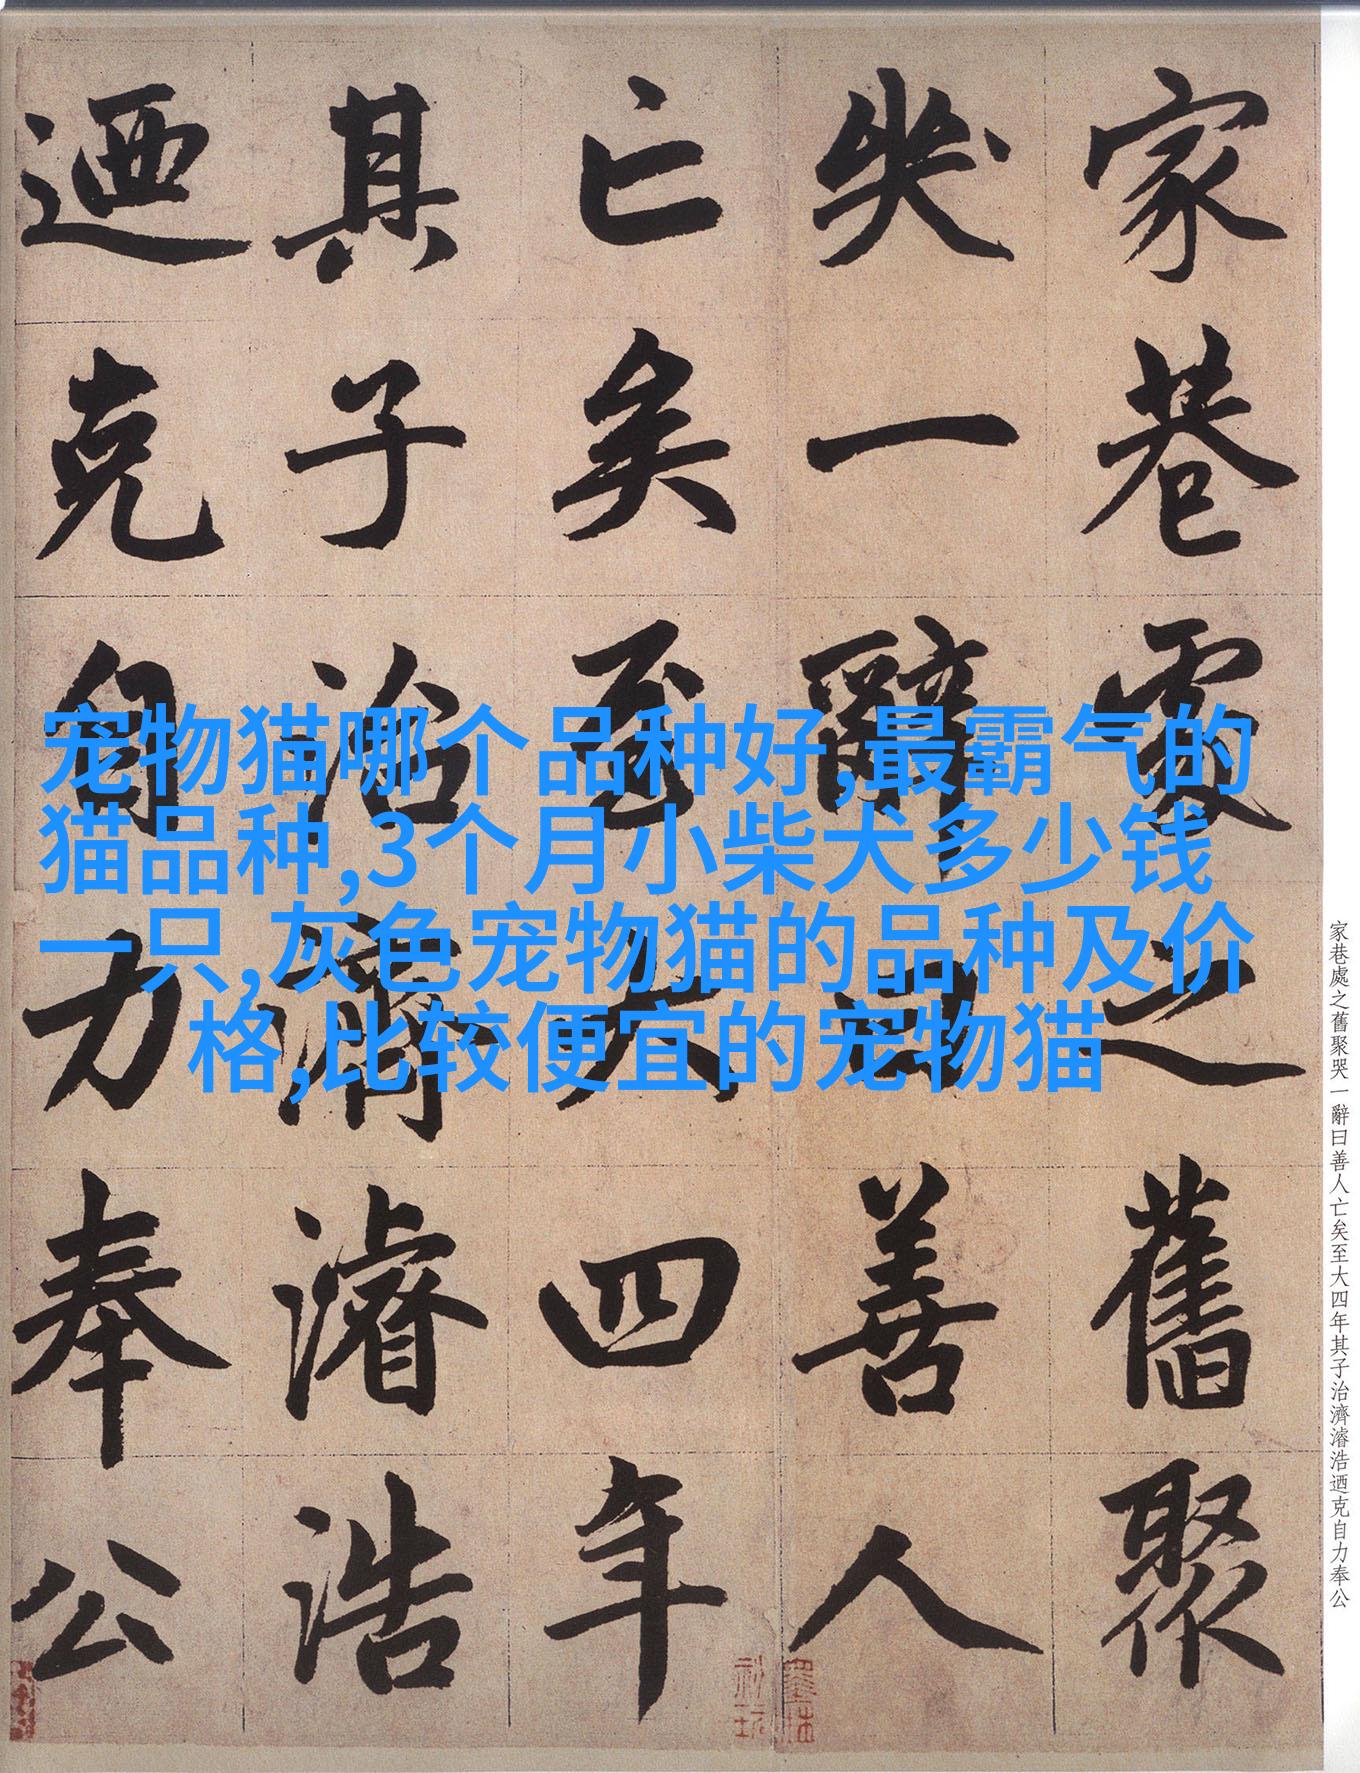 家巷處之舊聚
哭一辭曰善人
亡矣至大四年
其子治濟濬浩
迺克自力奉公
宠物猫哪个品种好,最霸气的
猫品种,3个月小柴犬多少钱
一只,灰色宠物猫的品种及价
格,比较便宜的宠物猫
家巷處之舊聚哭一辭曰善人亡矣至大四年其子治濟濬浩迺克自力奉公